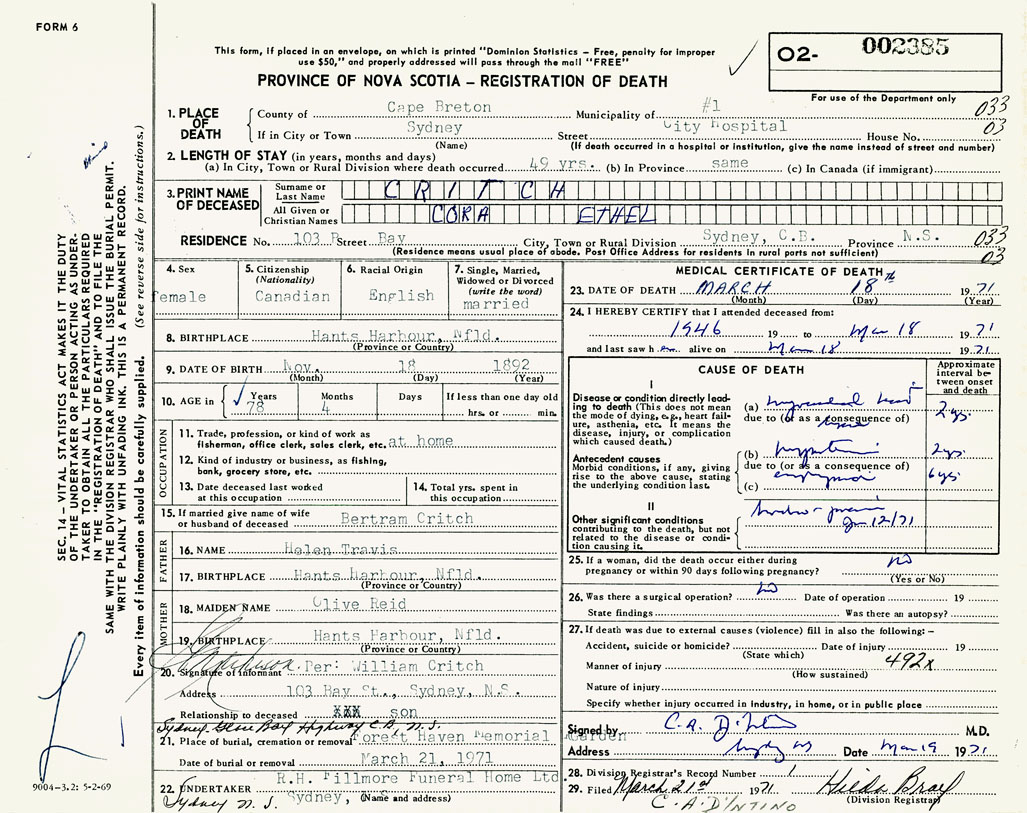 FORM 6
This form, if placed in an envelope, on which is printed "Dominion Statistics – Free, penalty for improper
use $50," and properly addressed will pass through the mail "FREE"
PROVINCE OF NOVA SCOTIA – REGISTRATION OF DEATH
O2- 002385
For use of the Department only
033
03
1. PLACE OF DEATH
County of Cape Breton Municipality of #1
If in City or Town Sydney Street City Hospital House No.
(Name) (If death occurred in a hospital or institution, give the name instead of street and number)
2. LENGTH OF STAY (in years, months and days)
(a) In City, Town or Rural Division where death occurred 49 yrs. (b) In Province same (c) In Canada (if immigrant)
3. PRINT NAME OF DECEASED
Surname or Last Name CRITCH
All Given or Christian Names CORA ETHEL
RESIDENCE No. 103 B Street Bay City, Town or Rural Division Sydney, C.B. Province N.S. 033
(Residence means usual place of abode. Post Office Address for residents in rural ports not sufficient) 03
4. Sex
female
5. Citizenship
(Nationality)
Canadian
6. Racial Origin
English
7. Single, Married,
Widowed or Divorced
(write the word)
married
8. BIRTHPLACE Hants Harbour, Nfld.
(Province or Country)
9. DATE OF BIRTH Nov. 18 1892
(Month) (Day) (Year)
10. AGE in Years Months Days If less than one day old
78 4 hrs. or min.
OCCUPATION
11. Trade, profession, or kind of work as
fisherman, office clerk, sales clerk, etc. at home
12. Kind of industry or business, as fishing,
bank, grocery store, etc.
13. Date deceased last worked
at this occupation
14. Total yrs. spent in
this occupation
15. If married give name of wife
or husband of deceased Bertram Critch
FATHER
16. NAME Helen Travis
17. BIRTHPLACE Hants Harbour, Nfld.
(Province or Country)
MOTHER
18. MAIDEN NAME Olive Reid
19. BIRTHPLACE Hants Harbour, Nfld.
(Province or Country)
20. Signature of informant Per: William Critch
Address 103 Bay St., Sydney, N.S.
Relationship to deceased XXX son
Sydney Glace Bay Highway C.B. N.S.
21. Place of burial, cremation or removal Forest Haven Memorial Garden
Date of burial or removal March 21, 1971
22. UNDERTAKER R.H. Fillmore Funeral Home Ltd
Sydney N.S. Sydney, (Name and address)
MEDICAL CERTIFICATE OF DEATH
23. DATE OF DEATH MARCH 18th 1971
(Month) (Day) (Year)
24. I HEREBY CERTIFY that I attended deceased from:
1946 19 to Mar 18 1971
and last saw h er alive on Mar 18 1971
CAUSE OF DEATH
Approximate
interval be-
tween onset
and death
I
Disease or condition directly lead-
ing to death (This does not
mean the mode of dying, e.g., heart fail-
ure, asthenia, etc. It means the
disease, injury, or complication
which caused death.)
(a) 2 yrs.
due to (or as a consequence of)
Antecedent causes
Morbid conditions, if any, giving
rise to the above cause, stating
the underlying condition last.
(b) 2 yrs.
due to (or as a consequence of)
(c) 6 yrs.
II
Other significant conditions
contributing to the death, but not
related to the disease or condi-
tion causing it.
Jan 12/71
25. If a woman, did the death occur either during
pregnancy or within 90 days following pregnancy? No
(Yes or No)
26. Was there a surgical operation? No Date of operation 19
State findings Was there an autopsy?
27. If death was due to external causes (violence) fill in also the following:–
Accident, suicide or homicide? Date of injury 19
(State which) 492x
Manner of injury
(How sustained)
Nature of injury
Specify whether injury occurred in industry, in home, or in public place
Signed by C.A. D'Intino M.D.
Address Sydney NS Date Mar 19 1971
28. Division Registrar's Record Number 1
29. Filed March 21st 1971 Hilda Bray
(Division Registrar)
C.A. D'INTINO
SEC. 14 – VITAL STATISTICS ACT MAKES IT THE DUTY
OF THE UNDERTAKER OR PERSON ACTING AS UNDER-
TAKER TO OBTAIN ALL THE PARTICULARS REQUIRED
IN THE "REGISTRATION OF DEATH" AND TO FILE THE
SAME WITH THE DIVISION REGISTRAR WHO SHALL ISSUE THE BURIAL PERMIT.
WRITE PLAINLY WITH UNFADING INK. THIS IS A PERMANENT RECORD.
Every item of information should be carefully supplied. (See reverse side for instructions.)
9004-3.2: 5-2-69